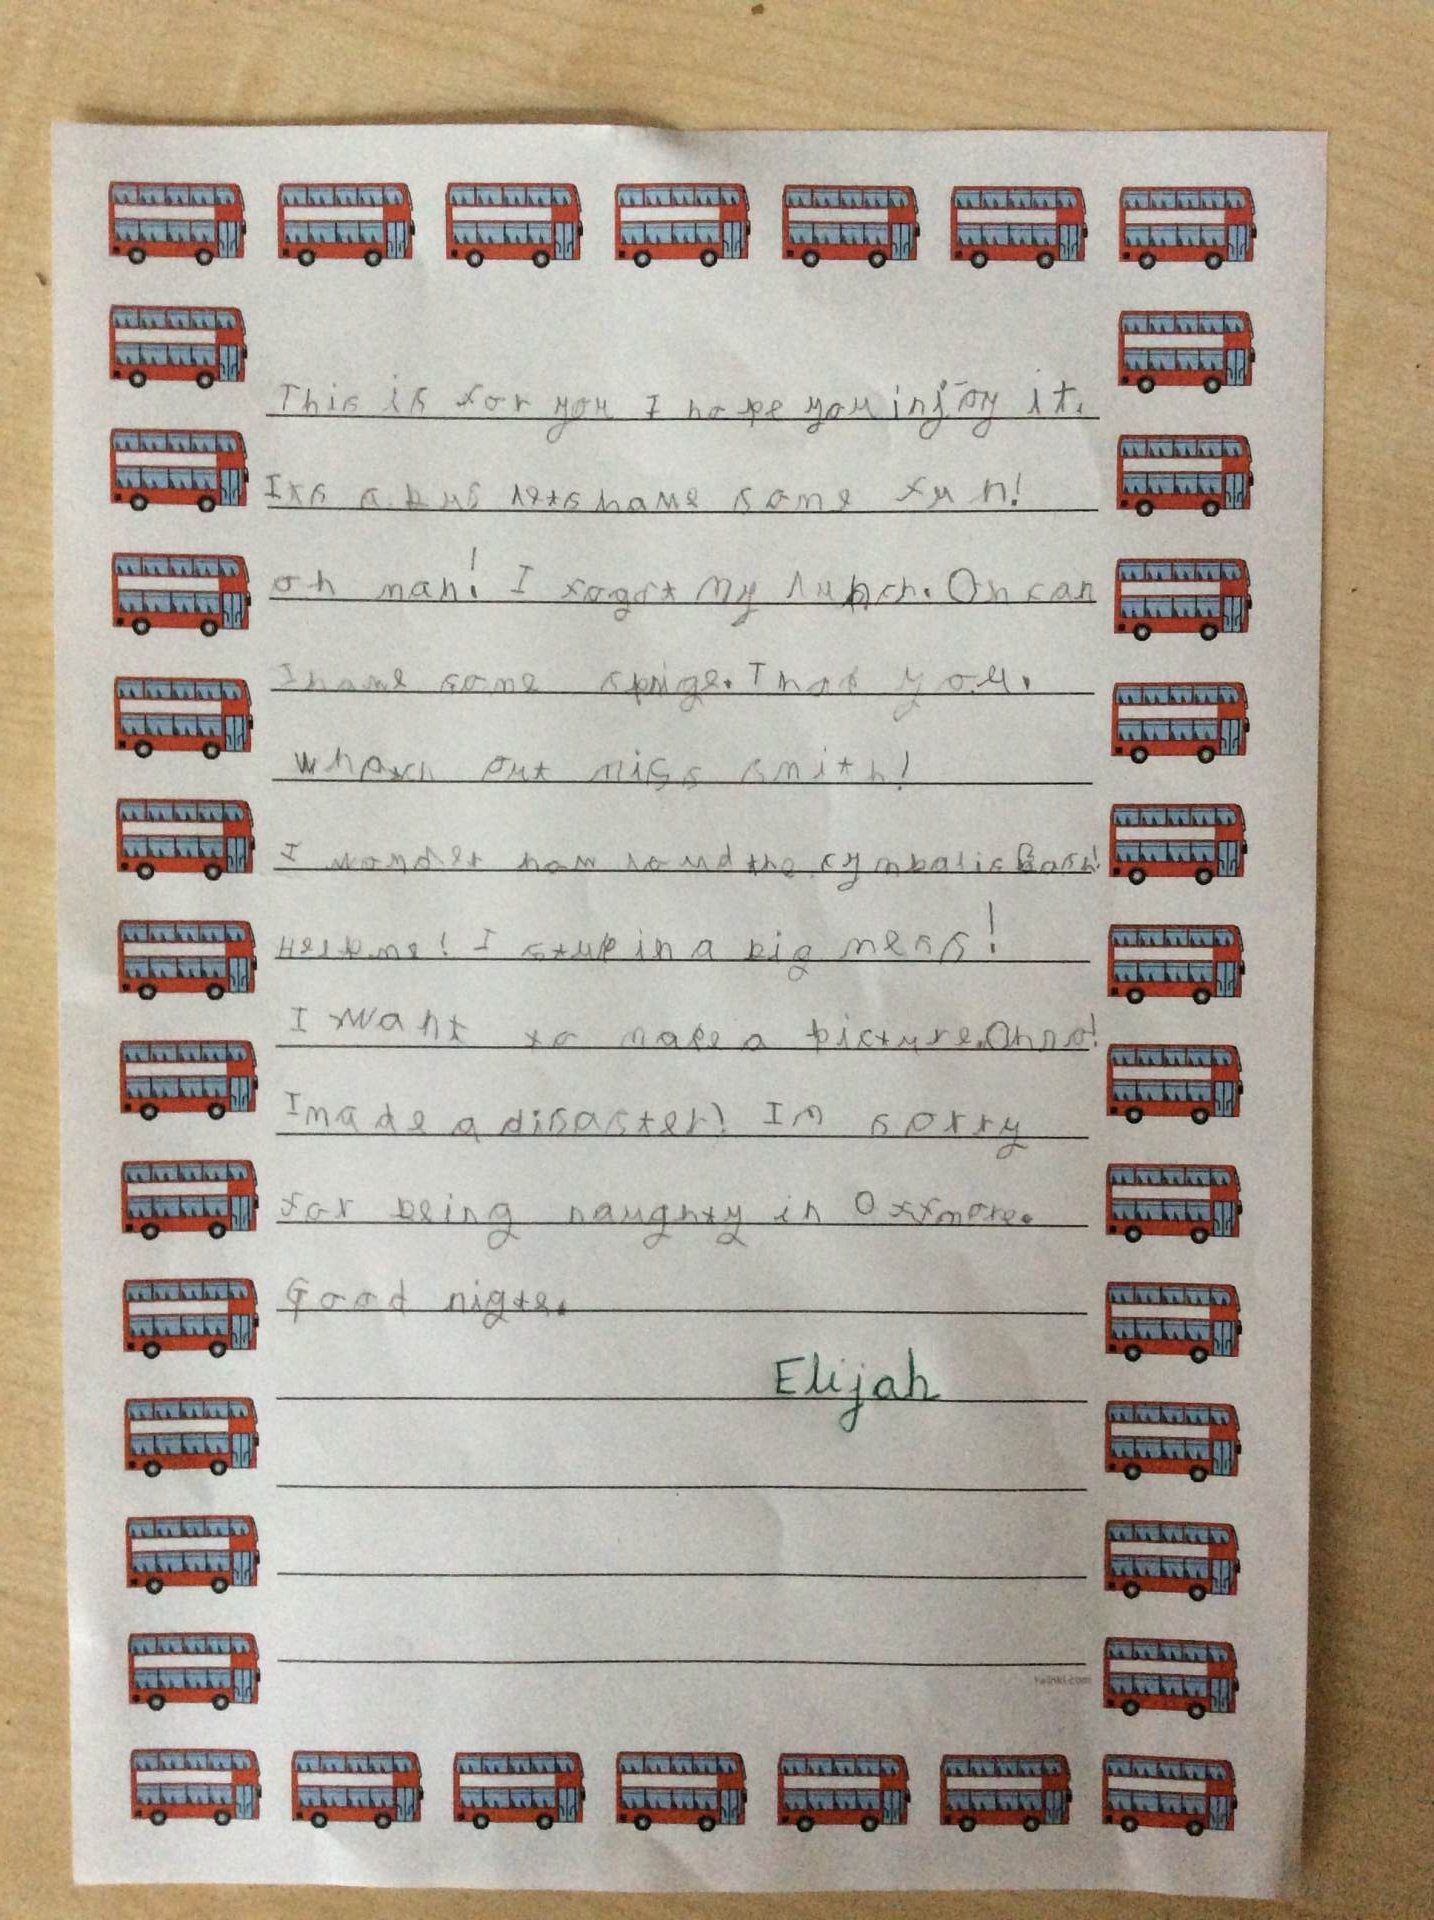 This is for you I hope you injoy it.
Its a bus lets have some fun!
oh man! I fogot my lunch. Oh can
I have some spige. Thak you.
whatch out miss smith!
I wonder how loud the cymbal is Bash!
Help me! I stuk in a big mess!
I want to make a picture. Oh no!
I made a disaster! Im sorry
for being naughty in Oxfmore.
Good nigte.
Elijah
twinkl.com